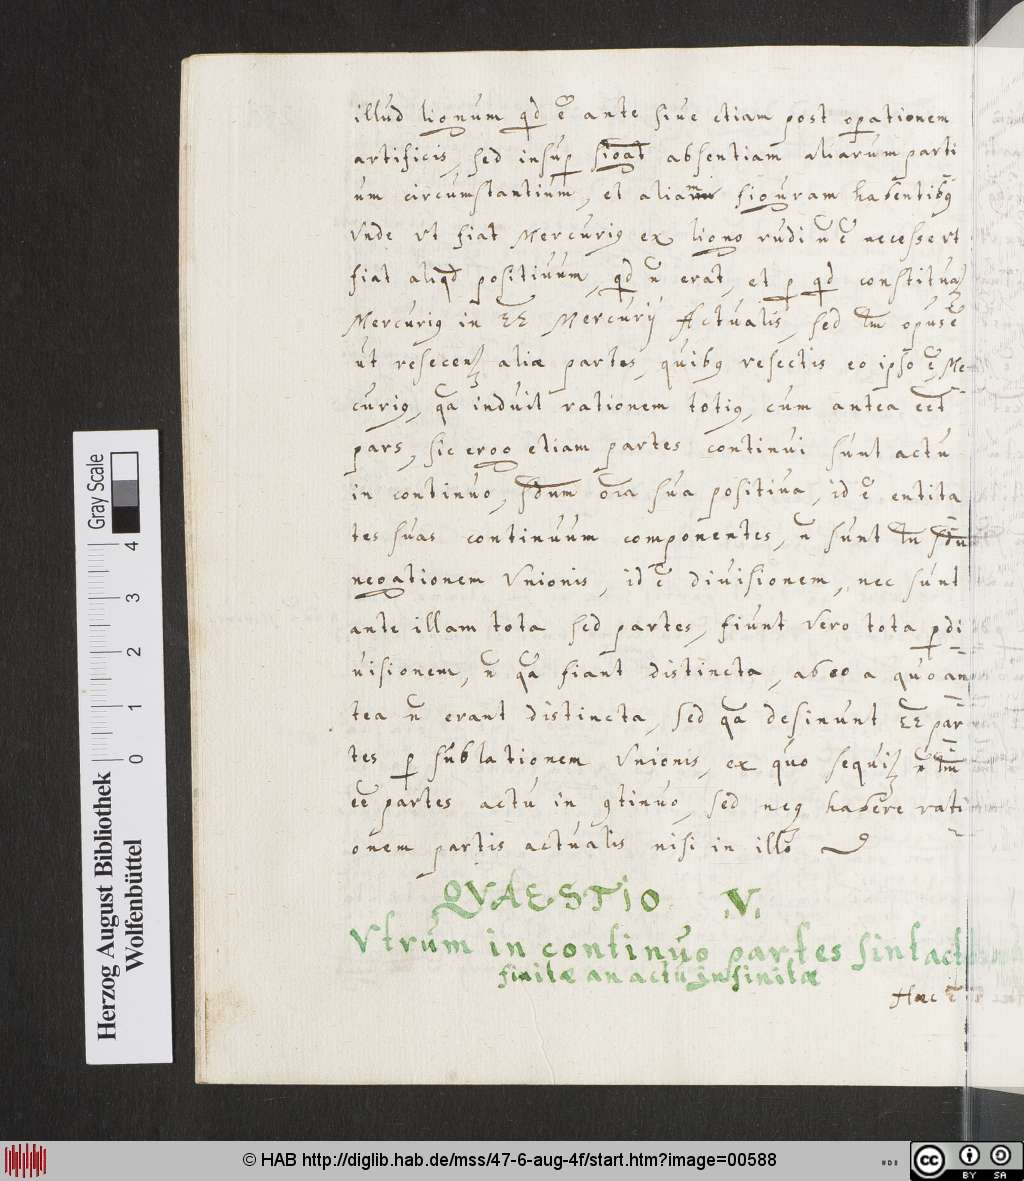 illud lignum qd ē ante siue etiam post operationem
artificis, sed insup absentiam aliarum parti
um circumstantium, et aliam figuram habentibq
Vnde ut fiat Mercuriq ex ligno rudi n̄ ē necesse vt
fiat aliqd positiuum, qd n̄ erat, et p qd constitua
Mercuriq in Mercurij Actualis, sed tm̄
ut resecen aliæ partes, quibq resectis eo ipso ē Me-
curiq, qa induit rationem totiq, cum antea eēt
pars, sic ergo etiam partes continui sunt actu
in continuo, sdum oīa sua positiua, id ē entita
tes suas continuum componentes, n̄ sunt tn̄ sdu
negationem Vnionis, id ē diuisionem, nec sunt
ante illam tota sed partes, fiunt vero tota p di
uisionem, n̄ qa fiant distincta, ab eo a quo an
tea n̄ erant distincta, sed qa desinunt par
tes p sublationem Vnionis, ex quo sequi n̄ tm̄
eē partes actu in 9tinuo, sed neq habere rati
onem partis actualis nisi in illo
QVAESTIO .V.
Vtrum in continuo partes sint actu
finitæ an actu infinitæ
Hæc
Herzog August Bibliothek
Wolfenbüttel
0 1 2 3 4
Gray Scale
© HAB http://diglib.hab.de/mss/47-6-aug-4f/start.htm?image=00588
cc BY SA